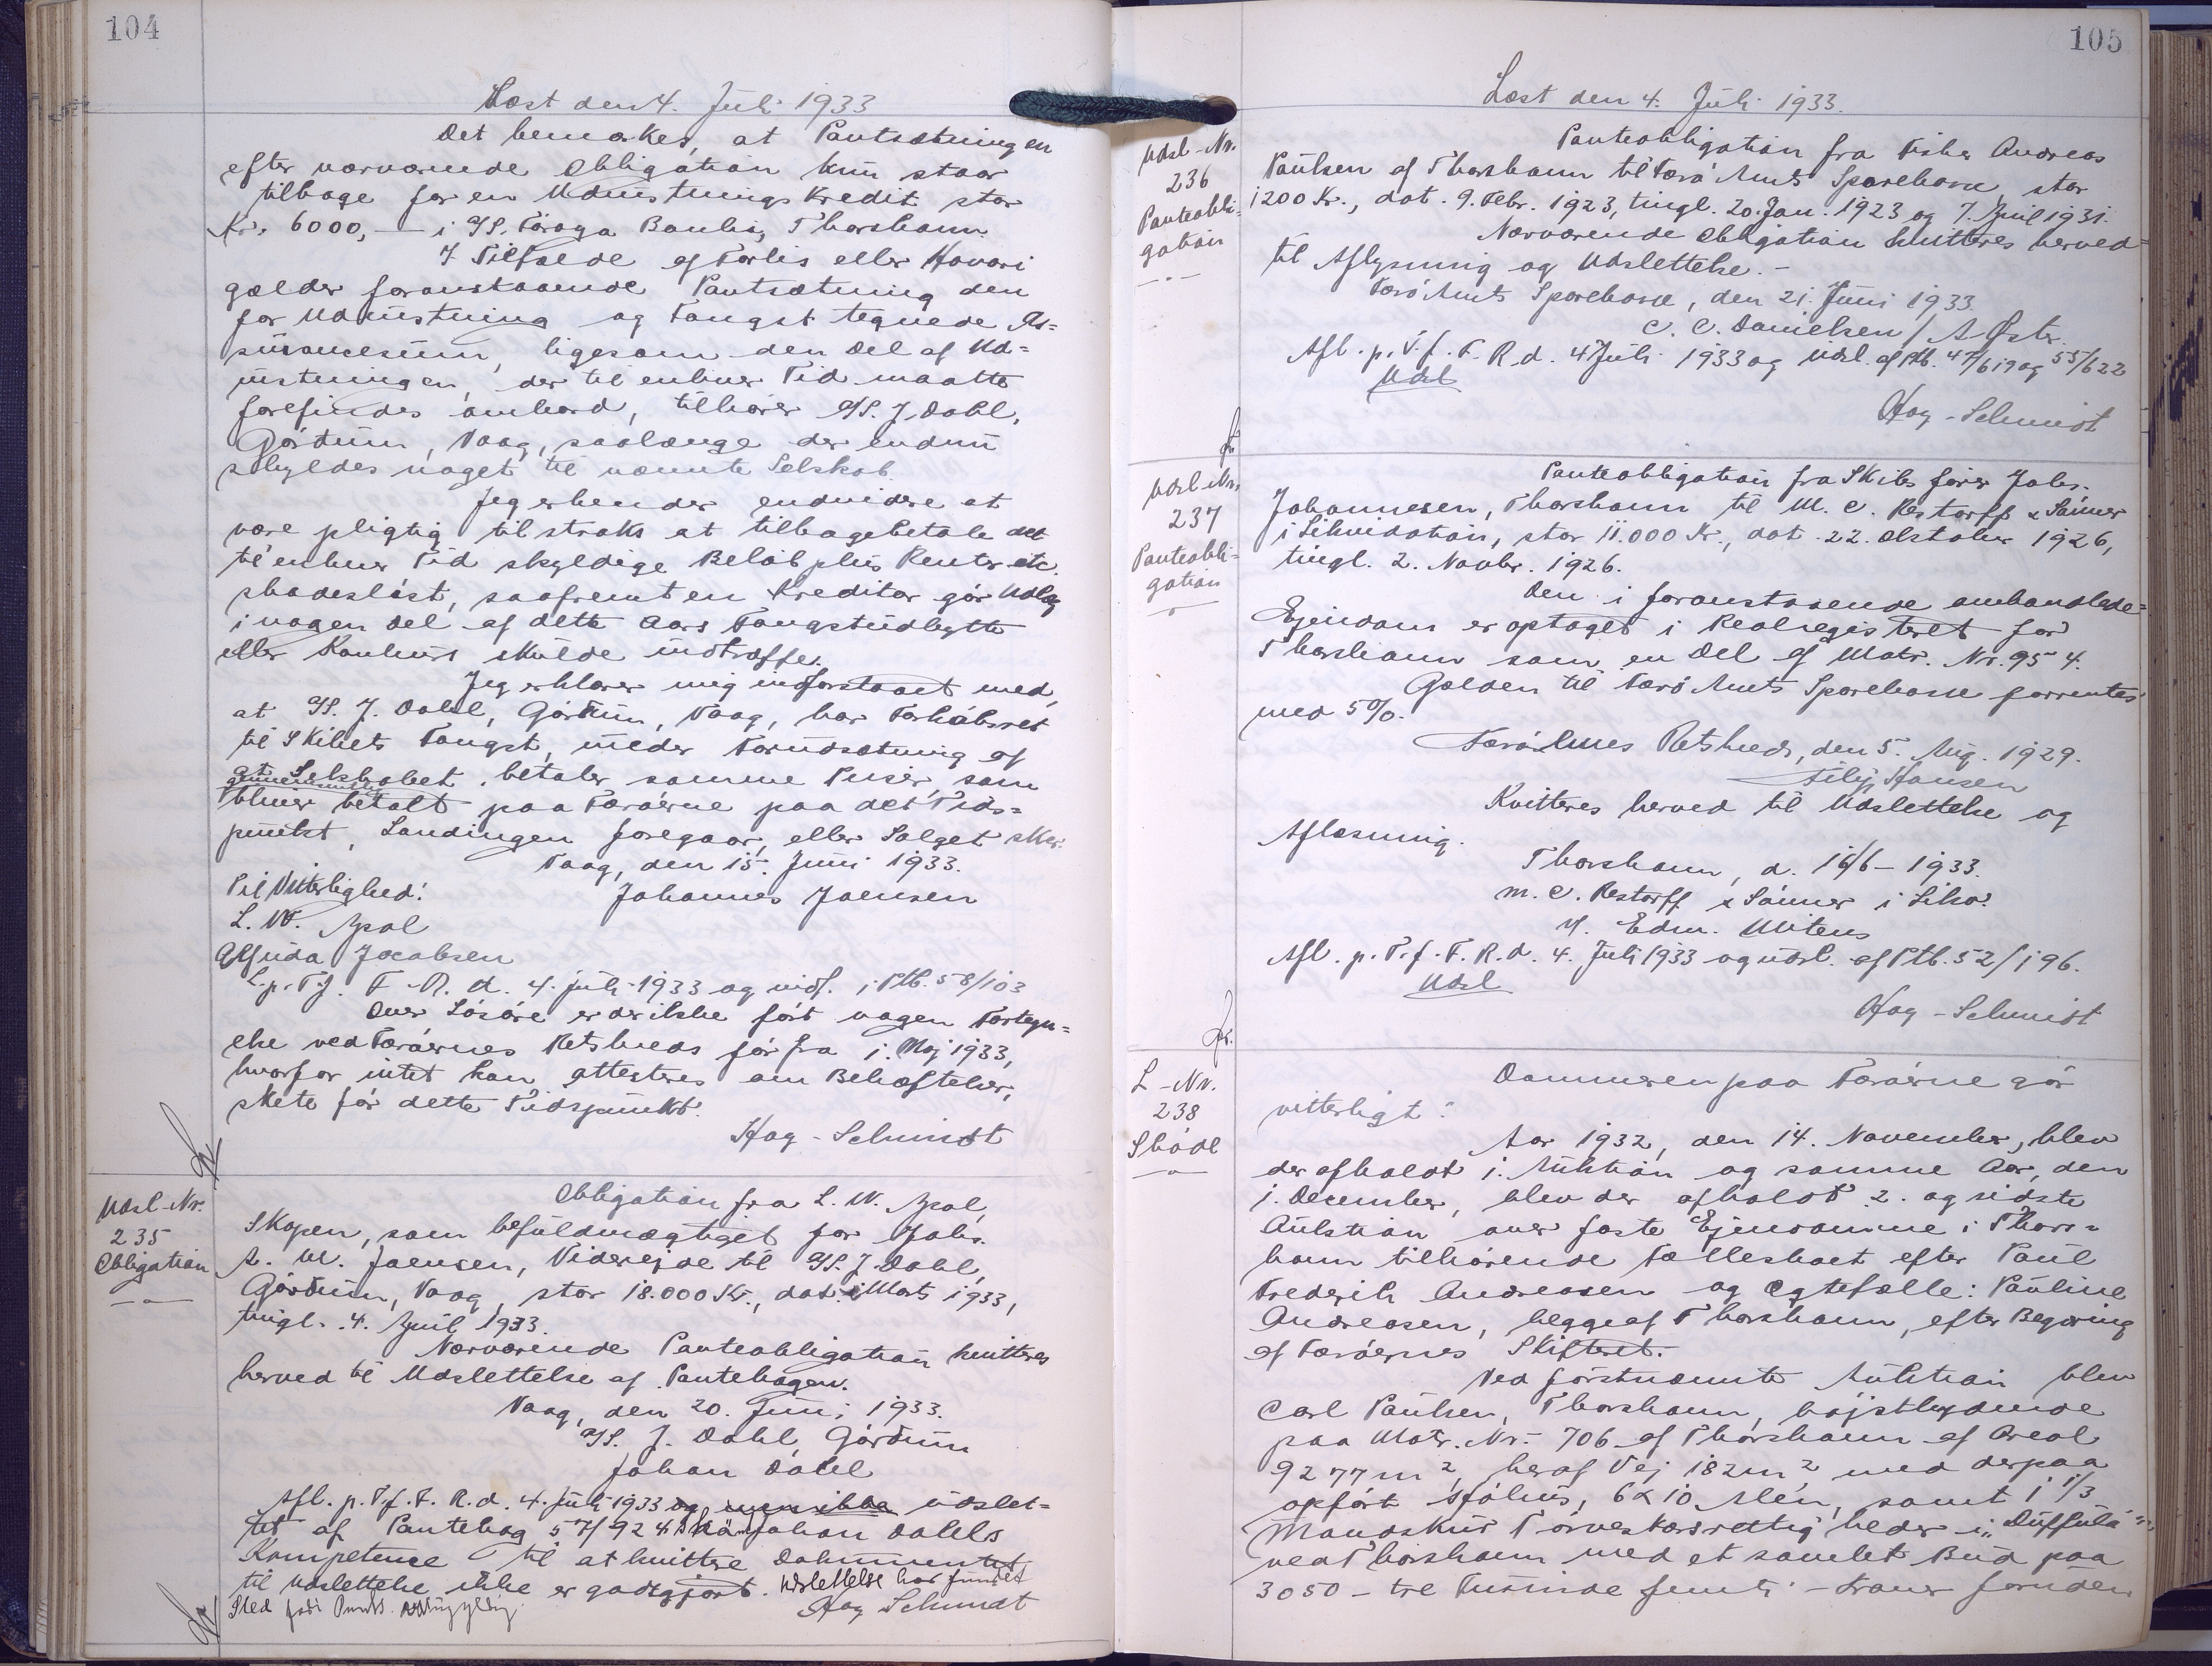 104
Læst den 4. Juli 1933
Det bemærkes, at Pantsætningen
efter nærværende Obligation kun staar
tilbage for en Udrustningskredit stor
Kr. 6000,— i A/S. Föroya Banki, Thorshavn.
I Tilfælde af Forlis eller Havari
gælder foranstaaende Pantsætning den
for Udrustning og Fangst tegnede As=
surancesum, ligesom den Del af Ud=
rustningen, der til enhver Tid maatte
forefindes ombord, tilhører A/S. J. Dahl,
Gördum, Vaag, saalænge der endnu
skyldes noget til nævnte Selskab.
Jeg erkender endvidere at
være pligtig til straks at tilbagebetale det
til enhver Tid skyldige Beløb plus Renter etc.
skadesløst, saafremt en Kreditor gør Udlæg
i nogen Del af dette Aars Fangstudbytte
eller Konkurs skulde indtræffe.
Jeg erklærer mig indforstaaet med,
at A/S. J. Dahl, Gördum, Vaag, har Forkøbsret
til Skibets Fangst, under Forudsætning af
at Selskabet betaler samme Priser, som
gennemsnitlig
bliver betalt paa Færøerne paa det Tids=
punkt, Landingen foregaar, eller Salget sker.
Vaag, den 15. Juni 1933.
Til Vitterlighed: Johannes Joensen
L. W. Apol
Jacobsen
L. p. T. f. F. R. d. 4. juli 1933 og indf. i Ptb. 58/103
Over Løsøre er der ikke ført nogen Forteg=
else ved Færøernes Retskreds før fra 1. Maj 1933,
hvorfor intet kan attesteres om Behæftelser,
skete før dette Tidspunkt.
Hog-Schmidt
Udsl-Nr.
235
Obligation
Obligation fra L. W. Apol,
Skopen, som befuldmægtiget for Johs.
A. M. Joensen, Viderejde til A/S. J. Dahl,
Gördum, Vaag, stor 18.000 Kr., dat. 1 Marts 1933,
tingl. 4. April 1933.
Nærværende Panteobligation kvitteres
herved til Udslettelse af Pantebogen.
Vaag, den 20. Juni 1933.
A/S. J. Dahl, Gördum
Johan Dahl
Afl. p. T. f. F. R. d. 4. Juli 1933 og ikke udslet=
tet af Pantebog 57/924 Johan Dahls
Kompetence til at kvittere Dokumentet
til Udslettelse ikke er godtgjort. Udslettelse har fundet
Sted
Hog Schmidt
105
Læst den 4. Juli 1933.
Udsl-Nr.
236
Panteobli=
gation
Panteobligation fra Fisker Andreas
Paulsen af Thorshavn til Færø Amts Sparekasse, stor
1200 Kr., dat. 9. Febr. 1923, tingl. 20. Jan. 1923 og 7. April 1931.
Nærværende Obligation kvitteres herved=
til Aflysning og Udslettelse.-
Færø Amts Sparekasse, den 21. Juni 1933.
C. C. Danielsen / A Østr.
Afl. p. T. f. F. R. d. 4 Juli 1933 og udsl. af Ptb. 47/619 og 55/622
Udsl
Hog-Schmidt
Udsl-Nr.
237
Panteobli=
gation
Panteobligation fra Skibsfører Johs.
Johannesen, Thorshavn til M. C. Restorff & Sønner
i Likvidation, stor 11.000 Kr., dat. 22. Oktober 1926,
tingl. 2. Novbr. 1926.
Den i foranstaaende omhandlede=
Ejendom er optaget i Realregisteret for
Thorshavn som en Del af Matr. Nr. 954.
Gælden til Færø Amts Sparekasse forrentes
med 5%.
Færøernes Retskreds, den 5. Aug. 1929.
Filip Hansen
Kvitteres herved til Udslettelse og
Aflæsning.
Thorshavn, d. 16/6-1933.
M. C. Restorff & Sønner i Likv.
Edw. Mitens
Afl. p. T. f. F. R. d. 4. Juli 1933 og udsl. af Ptb. 52/196.
Udsl
Hog-Schmidt
L-Nr.
238
Skøde
Dommeren paa Færøerne gör
vitterligt:
Aar 1932, den 14. November, blev
der afholdt 1. Auktion og samme Aar, den
1. December, blev der afholdt 2. og sidste
Auktion over faste Ejendomme i Thors=
havn tilhørende Fællesboet efter Paul
Frederik Andreasen og Egtefælle: Pauline
Andreasen, begge af Thorshavn, efter Begæring
af Færøernes Skifteret.
Ved førstnævnte Auktion blev
Carl Paulsen, Thorshavn, højstbydende
paa Matr. Nr. 706 af Thorshavn af Areal
9277 m², heraf Vej 182 m² med derpaa
opført Sjóhús, 6 x 10 Alen, samt 1 1/3
Mandskur Tørveskærsrettigheder i "Duffula"
ved Thorshavn med et samlet Bud paa
3050 - tre Tusinde femti - Kroner foruden